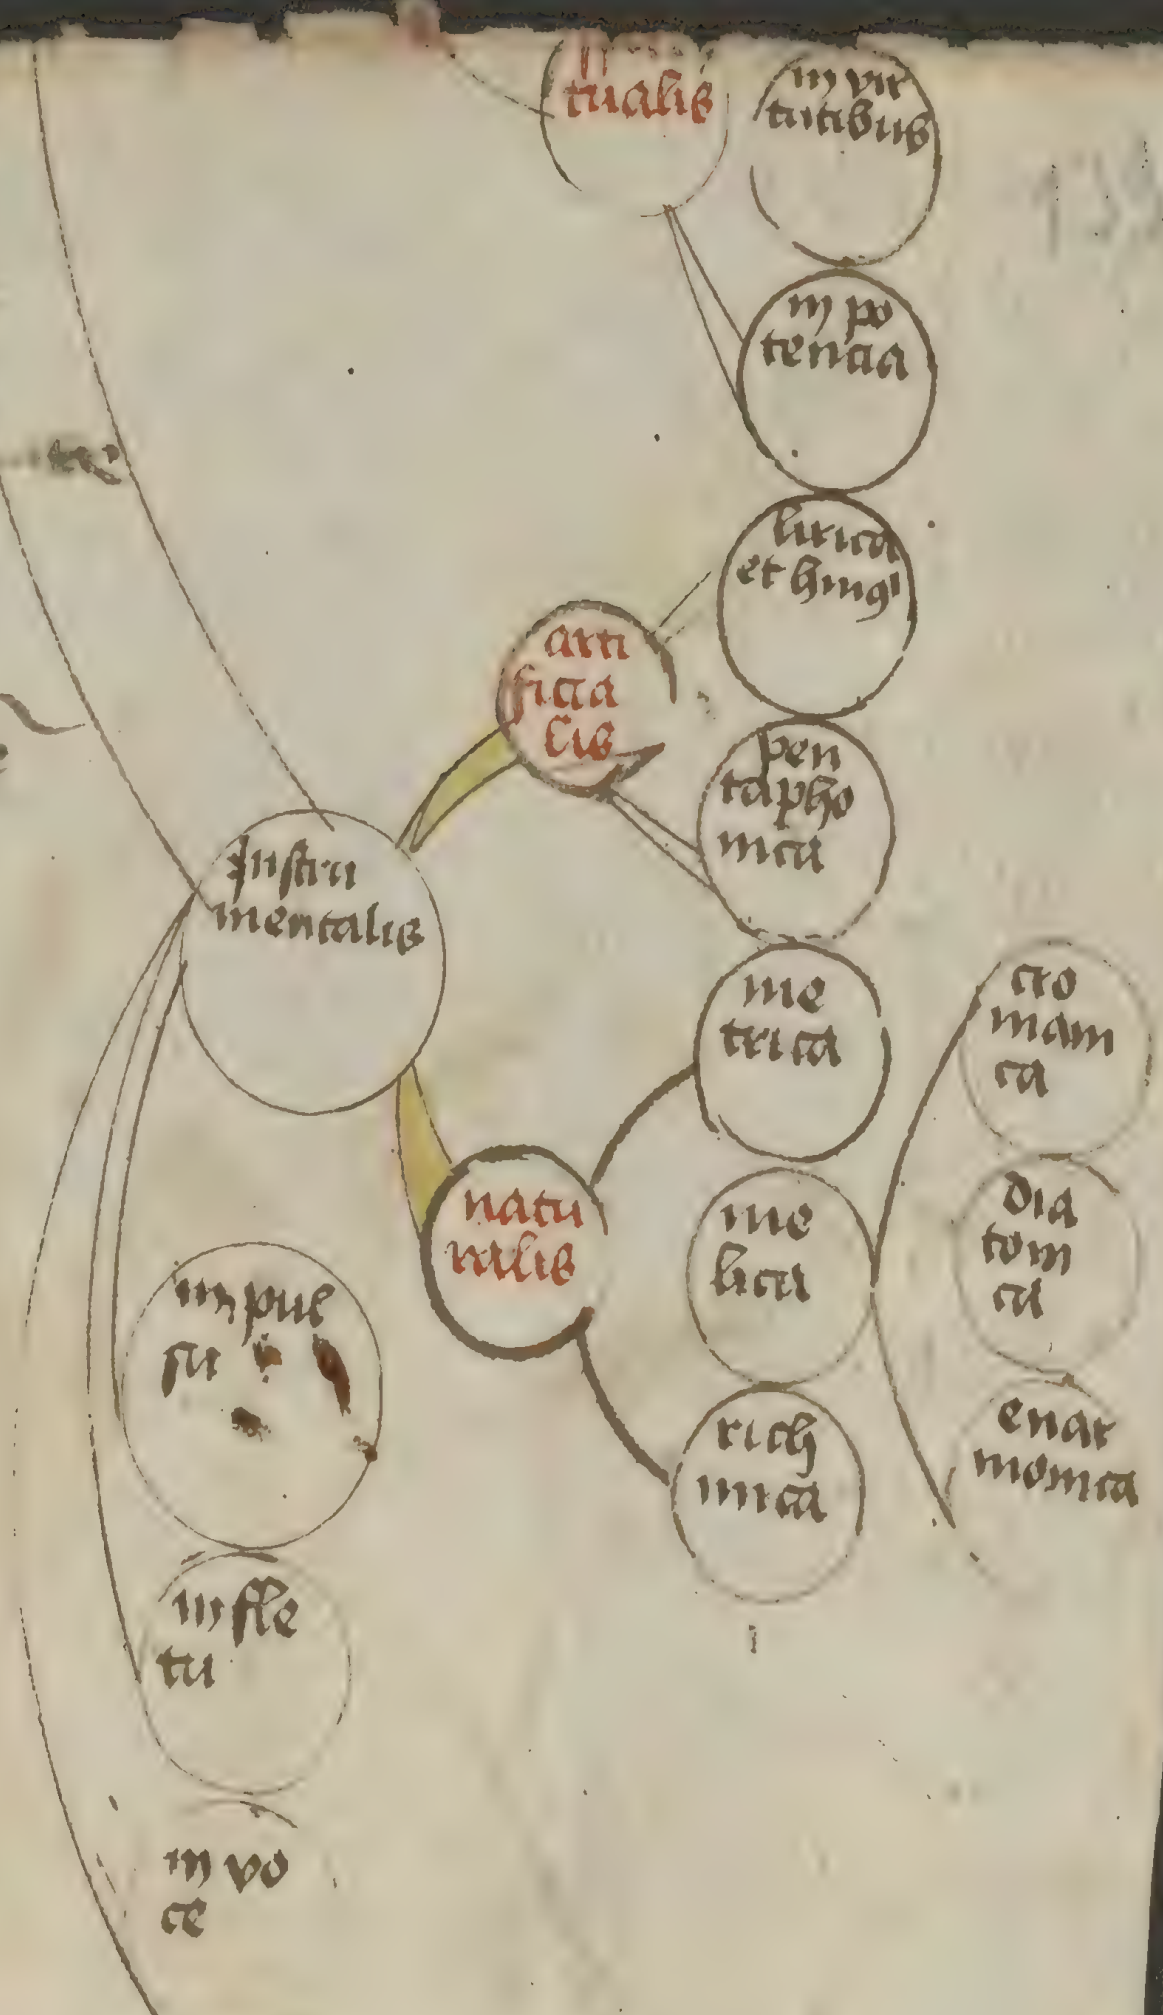 tualis
in vir
tutibus
in po
tencia
lirica
arti
ficia
lis
pen
tapho
nica
Instru
mentalis
me
trica
cro
mati
ca
natu
ralis
me
lica
dia
toni
ca
in pul
su
rich
mica
enar
monica
in fle
tu
in vo
ce